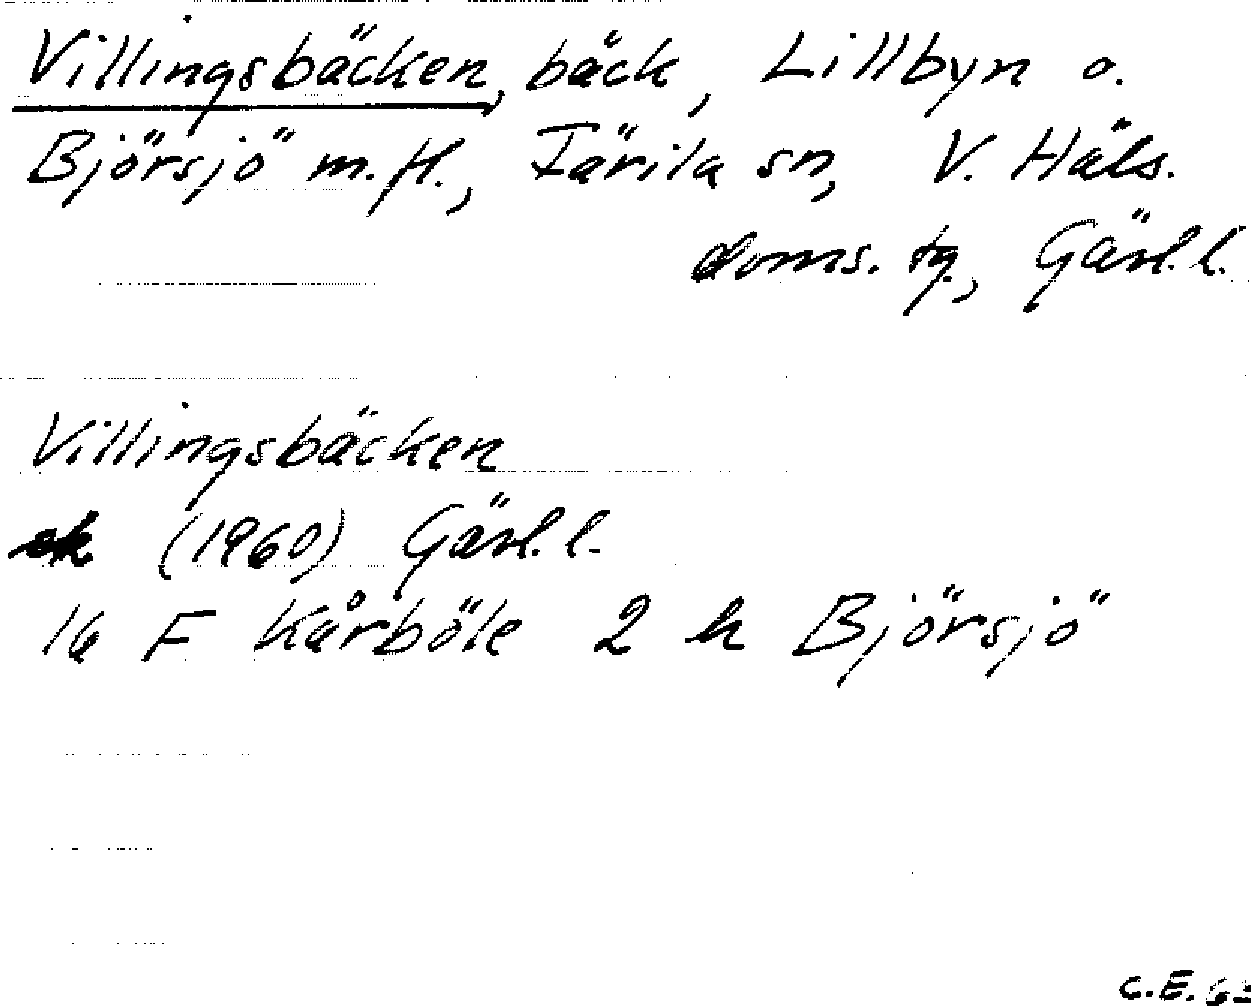 Villingsbäcken, bäck, Lillbyn o.
Björsjö m.fl., Färila sn, V. Häls.
doms. tg., Gävl.l.
Villingsbäcken
ek (1960) Gävl.l.
16 F Kårböle 2 h Björsjö
C.E. 63